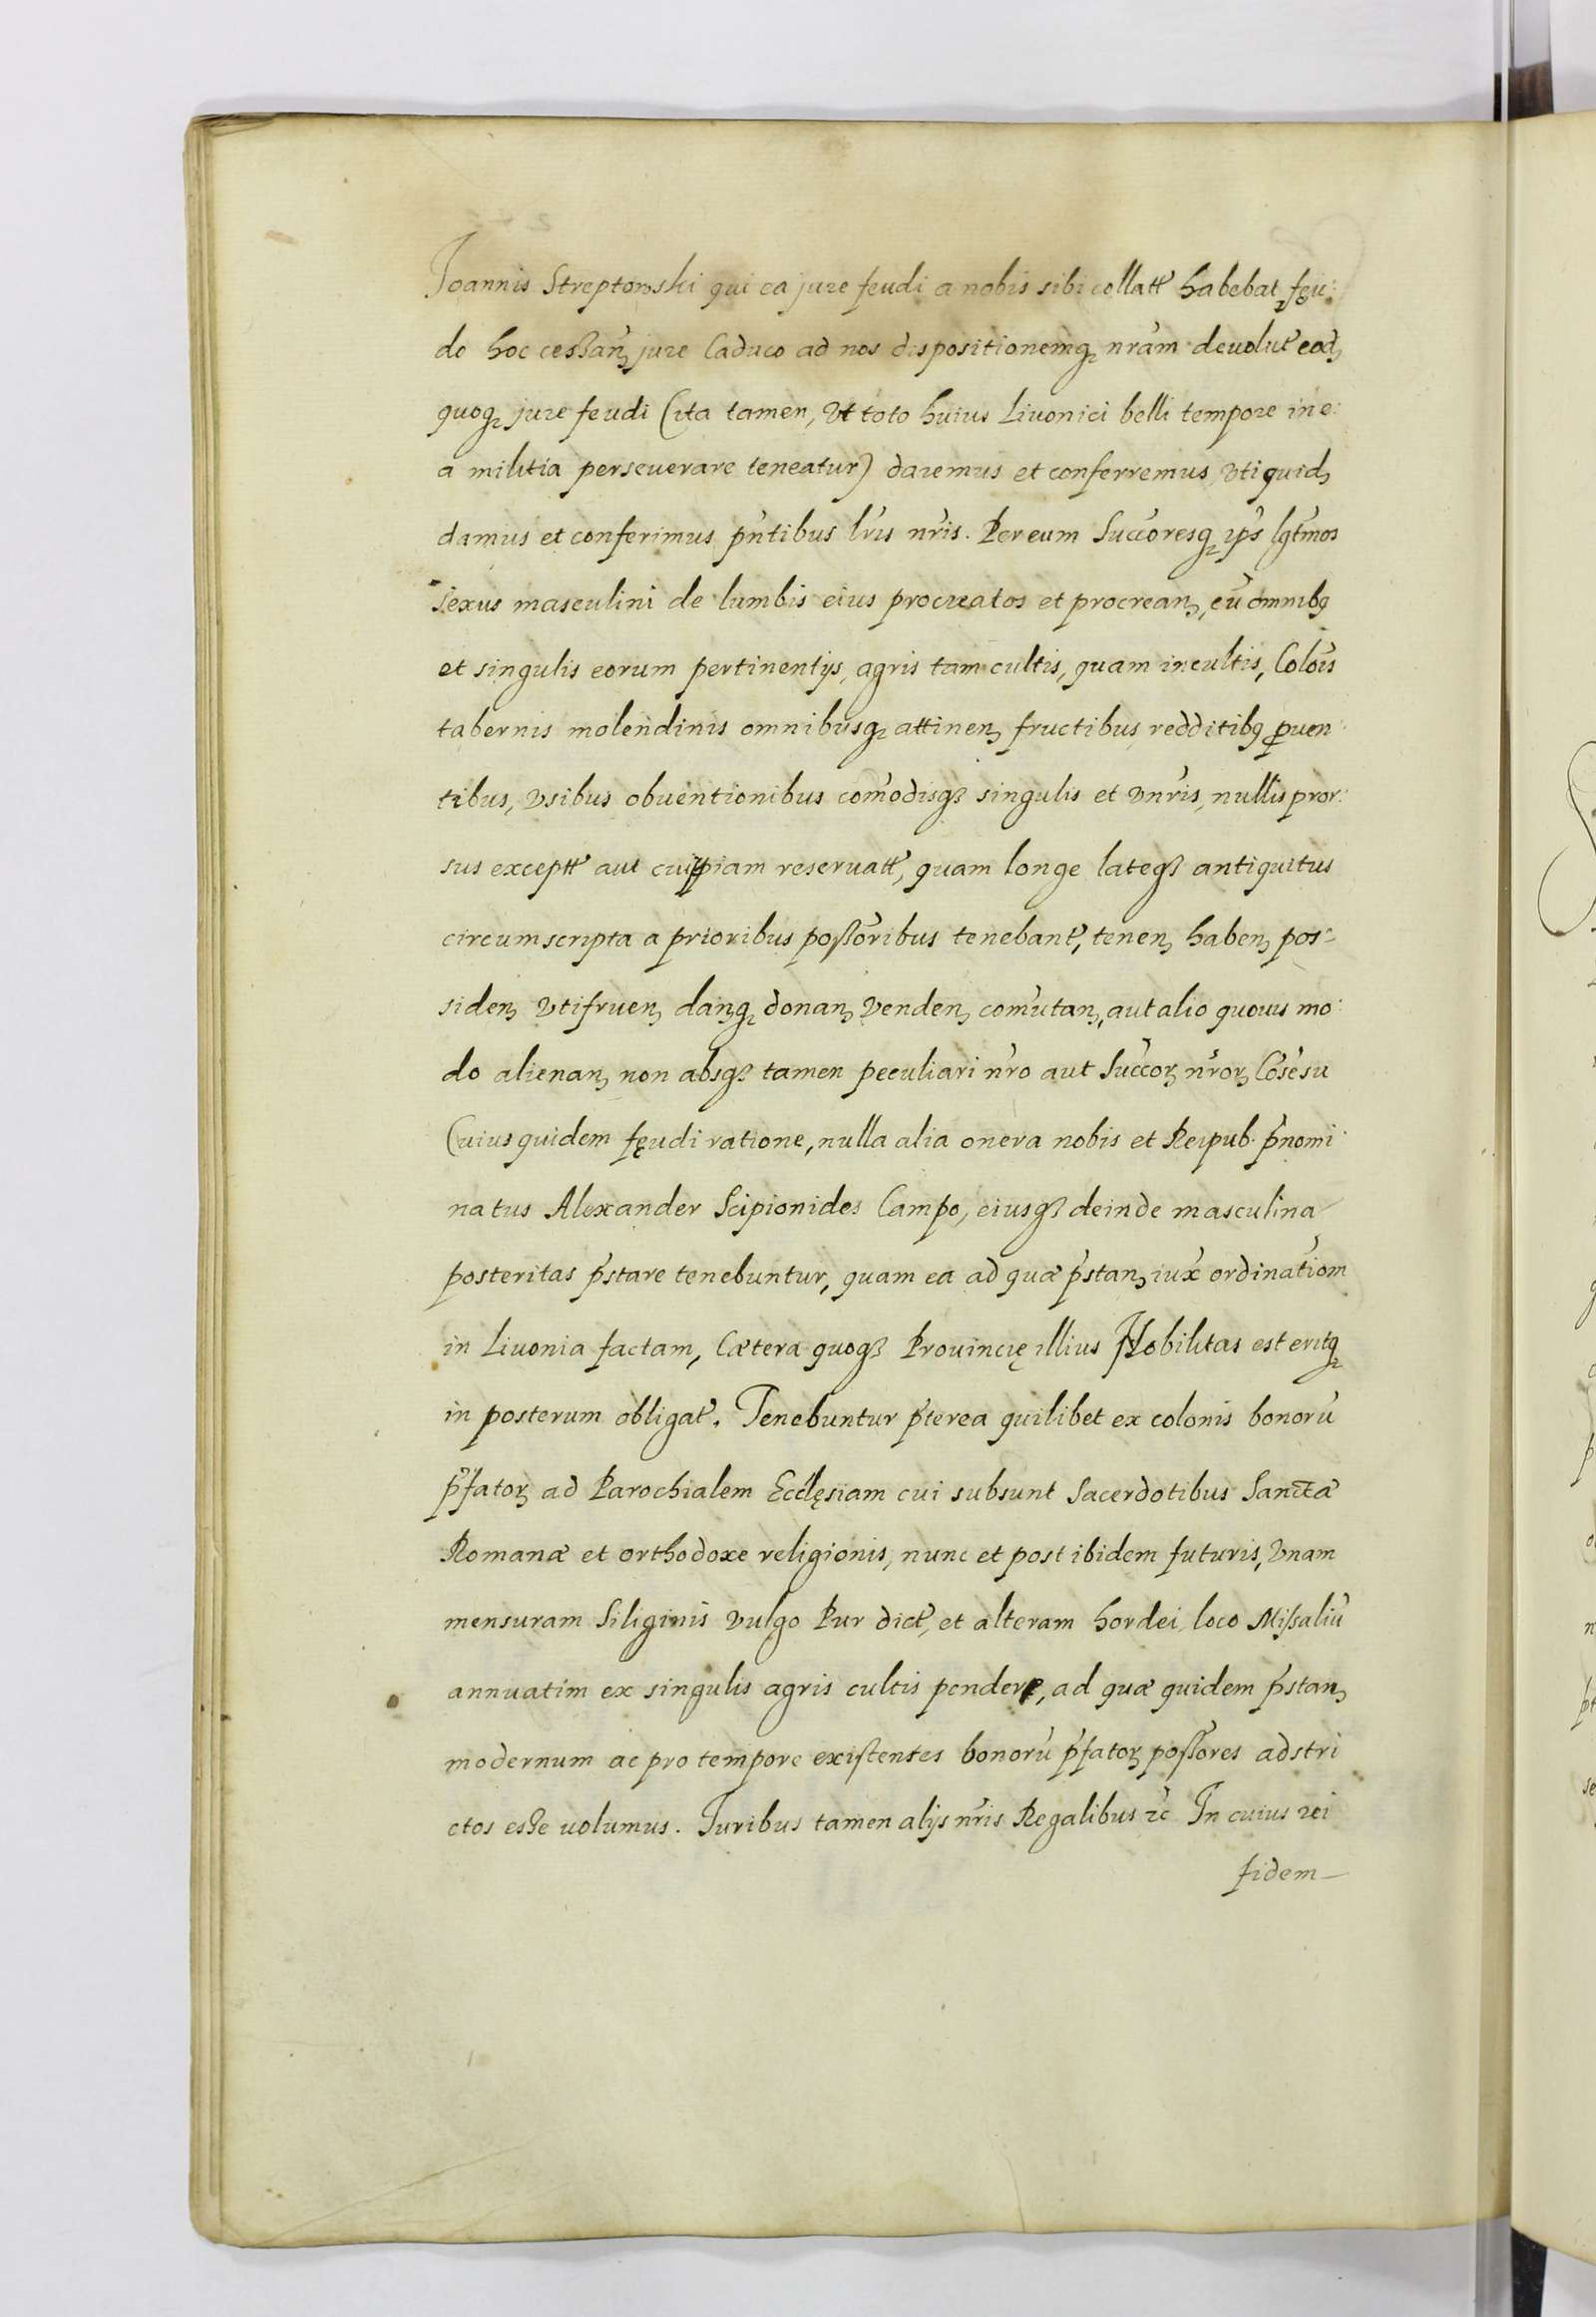 Joannis Streptowski qui ea jure feudi a nobis sibi collatt̃ habebat, fęu:
do hoc cessan̄ʒ jure Caduco ad nos dispositionemqʒ nrãm deuolut̃ eodʒ
quoqʒ jure feudi (ita tamen, vt toto huius Liuonici belli tempore in e:
a militia perseuerare teneatur) daremus et conferremus, vti quidʒ
damus et conferimus pñtibus lr̃is nr̃is. Per eum Succ̃oresqʒ ip̃s lgt̃mos
sexus masculini de lumbis eius procreatos et procreanʒ, cũ omnibʒ
et singulis eorum pertinentijs, agris tam cultis, quam incultis, Colõis
tabernis molendinis omnibusqʒ attinenʒ fructibus redditibʒ ꝓuen:
tibus, vsibus obuentionibus com̃odisqʒ singulis et vnr̃is, nullis pror:
sus exceptt̃ aut cuipiam reseruatt̃, quam longe lateqʒ antiquitus
circumscripta a prioribus poßõribus tenebant̃, tenenʒ habenʒ pos:
sidenʒ vtifruenʒ danʒqʒ donanʒ vendenʒ com̃utanʒ, aut alio quouis mo:
do alienanʒ non absqʒ tamen peculiari nr̃o aut Succ̃oꝝ nr̃oꝝ Cõsẽsu
Cuius quidem fęudi ratione, nulla alia onera nobis et Reipub. p̃nomi:
natus Alexander Scipionides Campo, eiusqʒ deinde masculina
posteritas p̃stare tenebuntur, quam ea ad quæ p̃stanʒ iux̃ ordinatiõm
in Liuonia factam, Cætera quoqʒ Prouincię illius Nobilitas est eritqʒ
in posterum obligat̃. Tenebuntur p̃terea quilibet ex colonis bonorũ
p̃fatoꝝ ad Parochialem Ecclęsiam cui subsunt Sacerdotibus Sanctæ
Romanæ et orthodoxe religionis, nunc et post ibidem futuris, vnam
mensuram Siliginis vulgo Pur dict̃, et alteram hordei, loco Missaliũ
annuatim ex singulis agris cultis pendere, ad quæ quidem p̃stanʒ
modernum ac pro tempore existentes bonorũ p̃fatoꝝ poßõres adstri
ctos esse uolumus. Juribus tamen alijs nr̃is Regalibus ꝛc̃ In cuius rei
fidem—